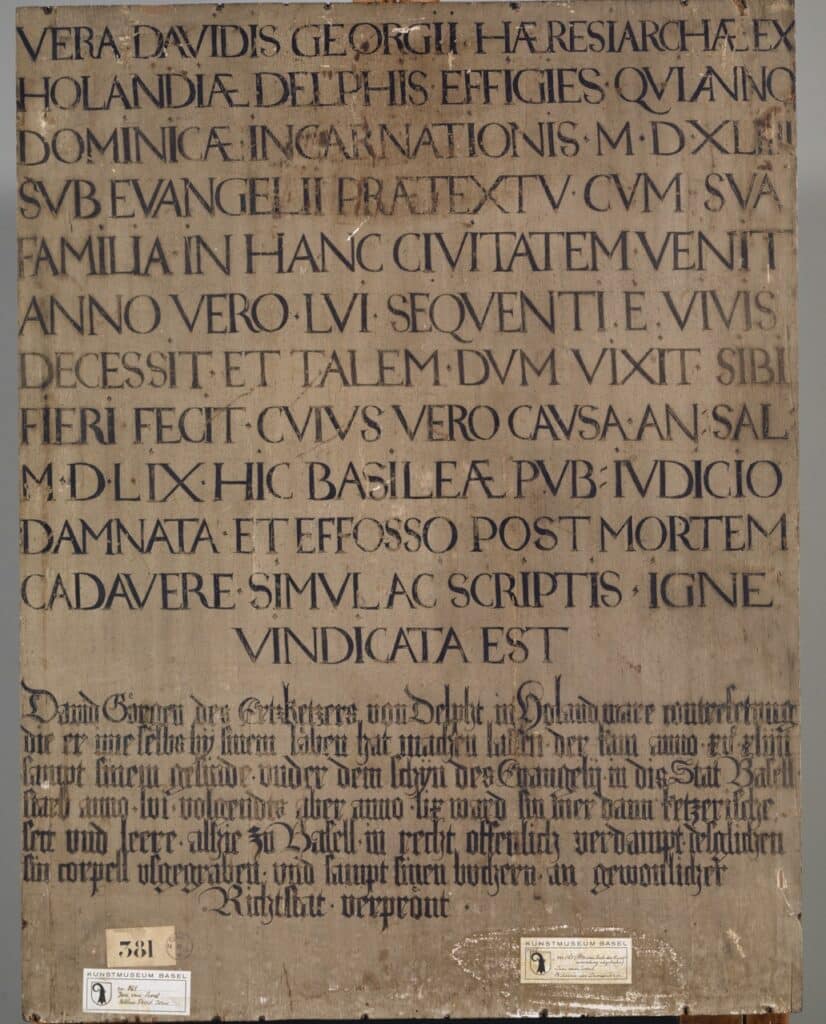 VERA DAVIDIS GEORGII HÆRESIARCHÆ EX
HOLANDIÆ DELPHIS EFFIGIES · QVI ANNO
DOMINICÆ · INCARNATIONIS · M · D XLIIII
SVB EVANGELII PRÆTEXTV · CVM SVA
FAMILIA IN HANC CIVITATEM VENIT
ANNO VERO · LVI · SEQVENTI · E · VIVIS
DECESSIT · ET TALEM · DVM VIXIT SIBI
FIERI FECIT · CVIVS VERO CAVSA · AN : SAL
M · D · L IX · HIC BASILEÆ PVB : IVDICIO
DAMNATA · ET EFFOSSO POST MORTEM
CADAVERE · SIMVL AC SCRIPTIS · IGNE
VINDICATA EST
Dauid Görgen des Ertzketzers von Delpht in Holand ware conterfetung
die er ime selbs by sinem läben hat machen lassen der kam anno · xv xliiii
sampt sinem gesinde vnder dem schyn des Euangelij in dis Stat Basell
starb anno · lvi · volgendts aber anno · lix ward sin ketzerische
sect vnd leere · alhie zu Basell in recht offenlich verdampt desglichen
sin corpell vsgegraben · vnd sampt sinen buchern · an gewonlicher
Richtstat · verprönt ·
381
KUNSTMUSEUM BASEL
KUNSTMUSEUM BASEL